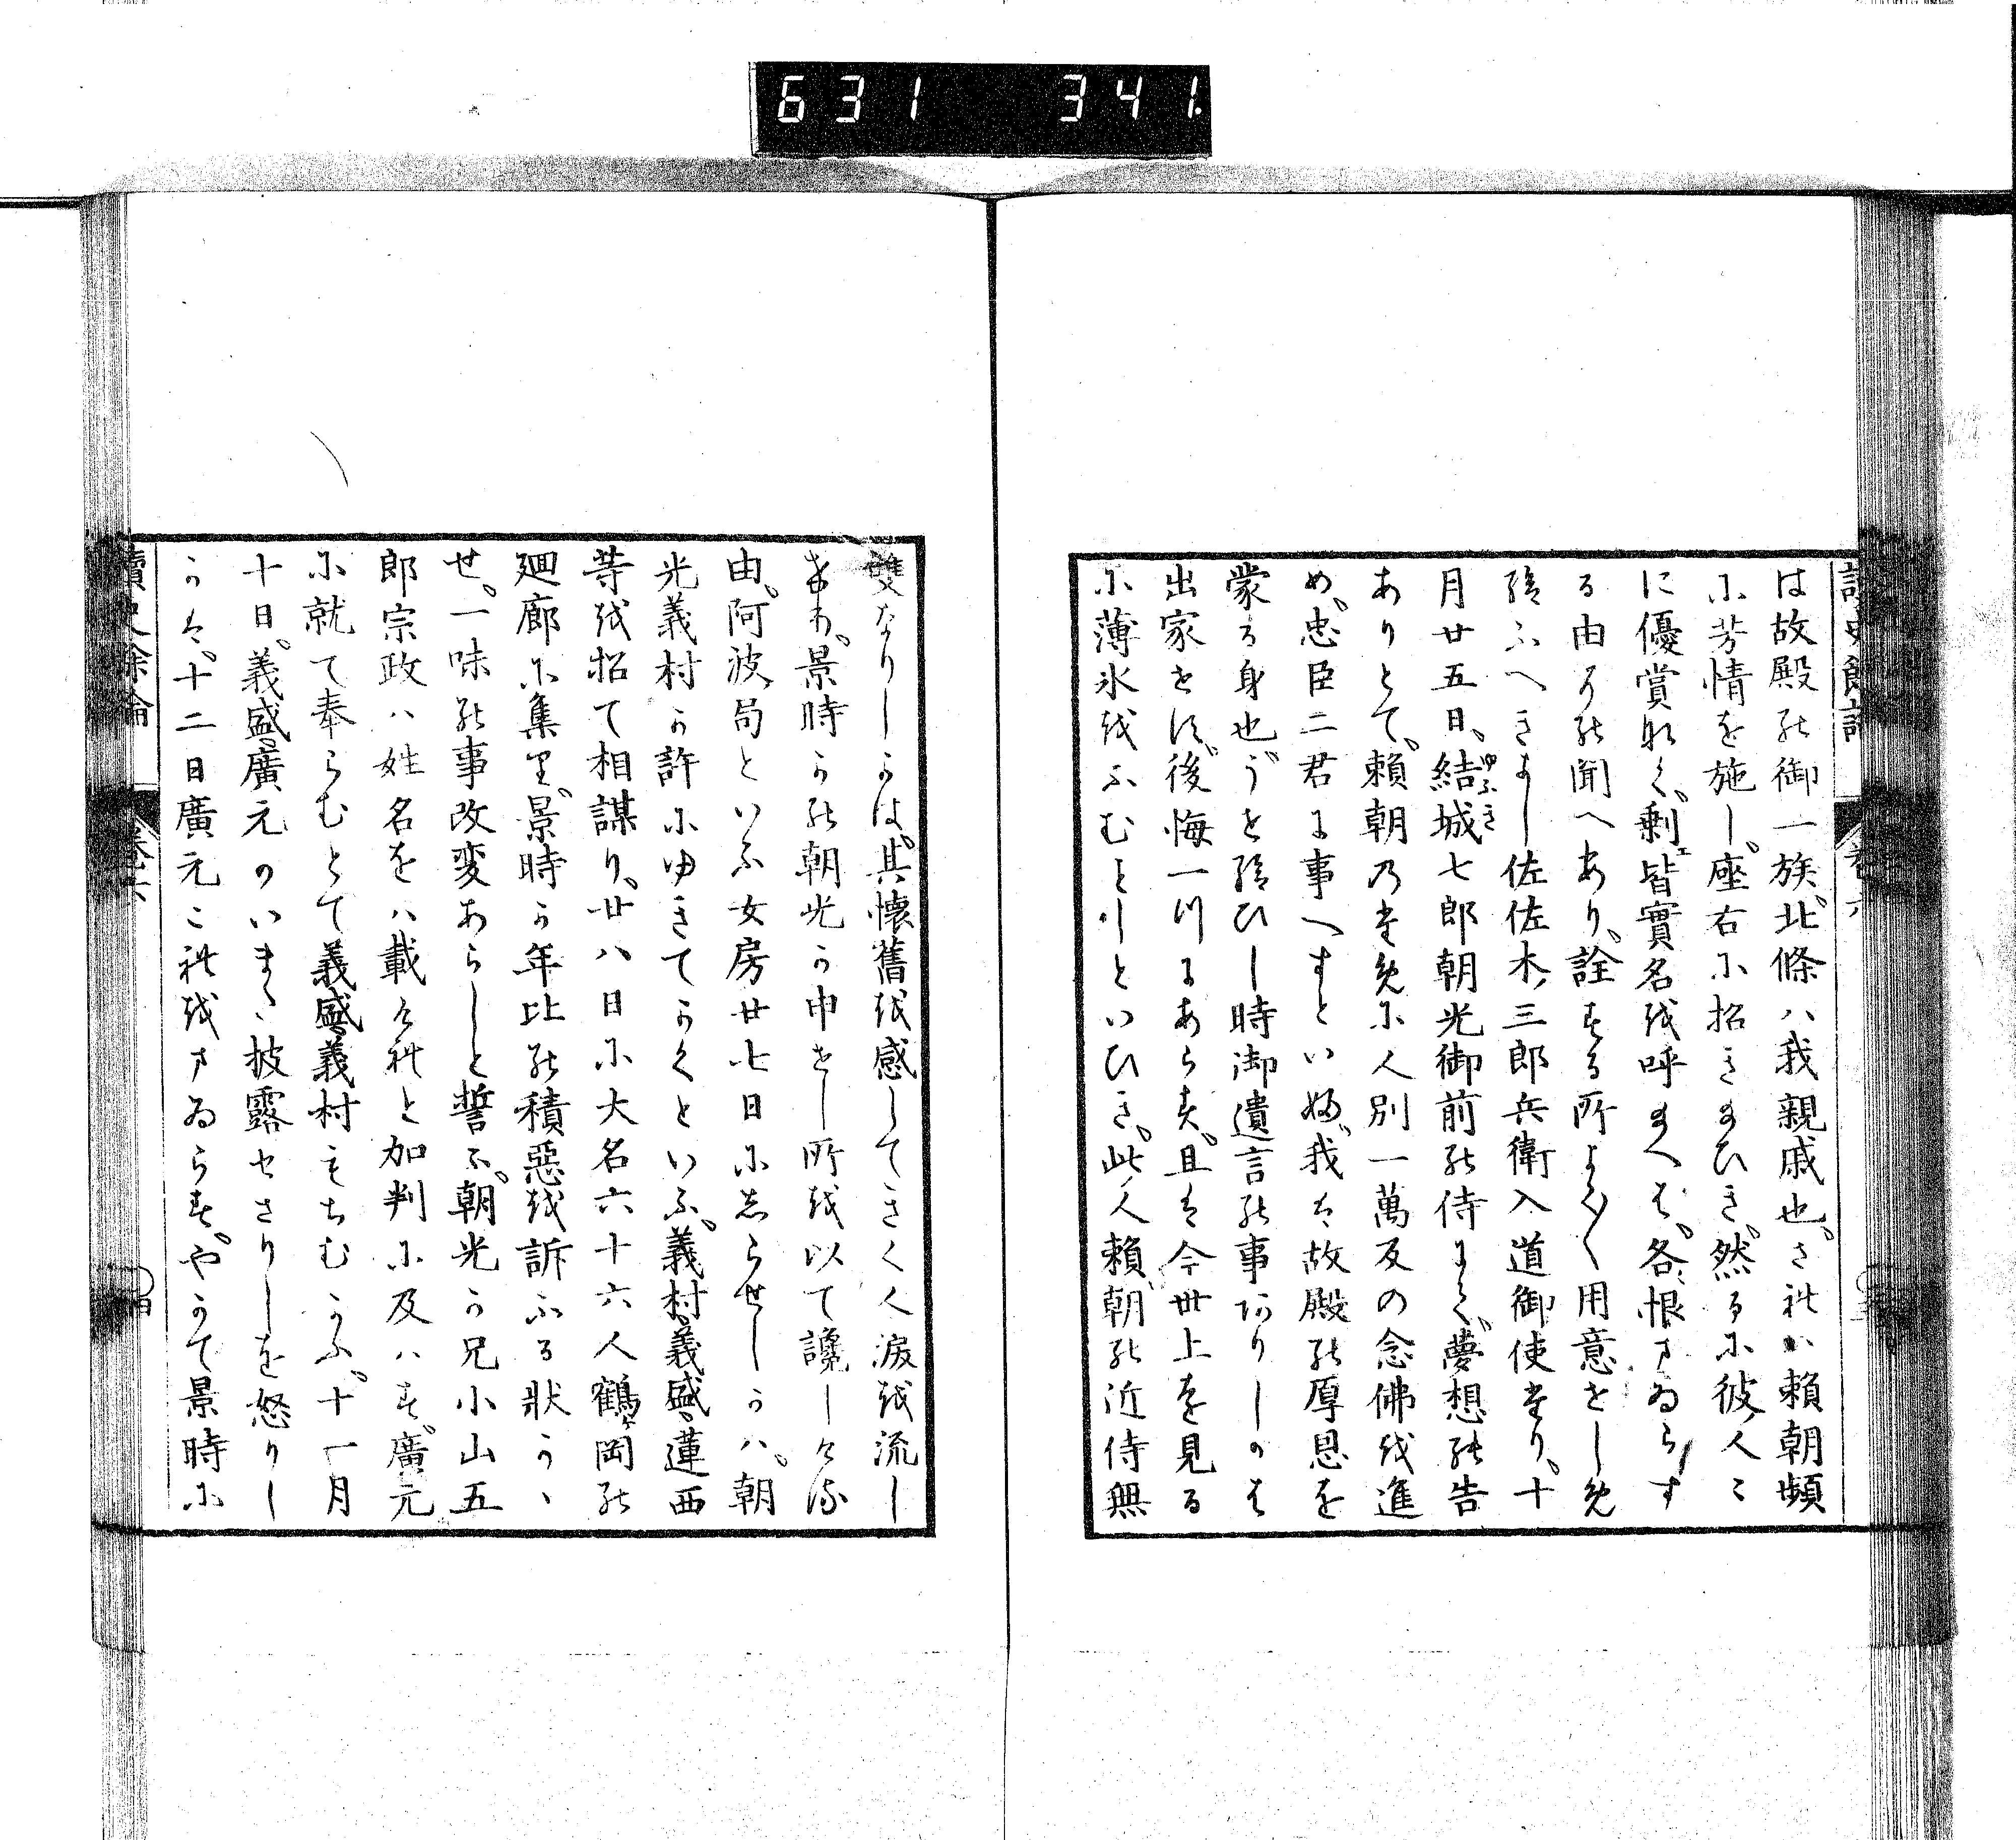 631 341
は故殿の御一族、北條ハ我親戚也、されハ賴朝頻
に芳情を施し、座右に招きまひき、然るに彼人〻
に優賞なく、剩ェ皆實名を呼まへば、各〻恨まゐらす
る由その聞へあり、詮ずる所よく〳〵用意をしため
給ふへきよし佐佐木三郎兵衛入道御使たり、十
月廿五日、結城ゆふき七郎朝光御前の侍にて、夢想の告
ありとて、賴朝乃ために人別一萬反の念佛を進
め、忠臣二君に事へすといへり、我は故殿の厚恩を
蒙る身也、うせ給ひし時御遺言の事ありしかは
出家せず、後悔一つにあらず、且は今世上を見る
に薄氷をふむとしといひき、此人賴朝の近侍無
雙なりしかは、其懷舊を感してきく人淚を流し
けり、景時かの朝光か申せし所を以て讒しける
由、阿波局といふ女房廿七日にしらせしかハ、朝
光義村か許にゆきてかくといふ、義村義盛蓮西
等を招て相謀り、廿八日に大名六十六人鶴ヶ岡の
廻廊に集り、景時か年比の積惡を訴ふる狀かゝ
せ、一味の事改変あらしと誓ふ、朝光か兄小山五
郎宗政ハ姓名をハ載けれと加判に及ハず、廣元
に就て奉らむとて義盛義村もちむかふ、十一月
十日、義盛廣元のいまゝ披露せさりしを怒りし
かは、十二日廣元これをまゐらす、やかて景時に
讀史餘論 卷六